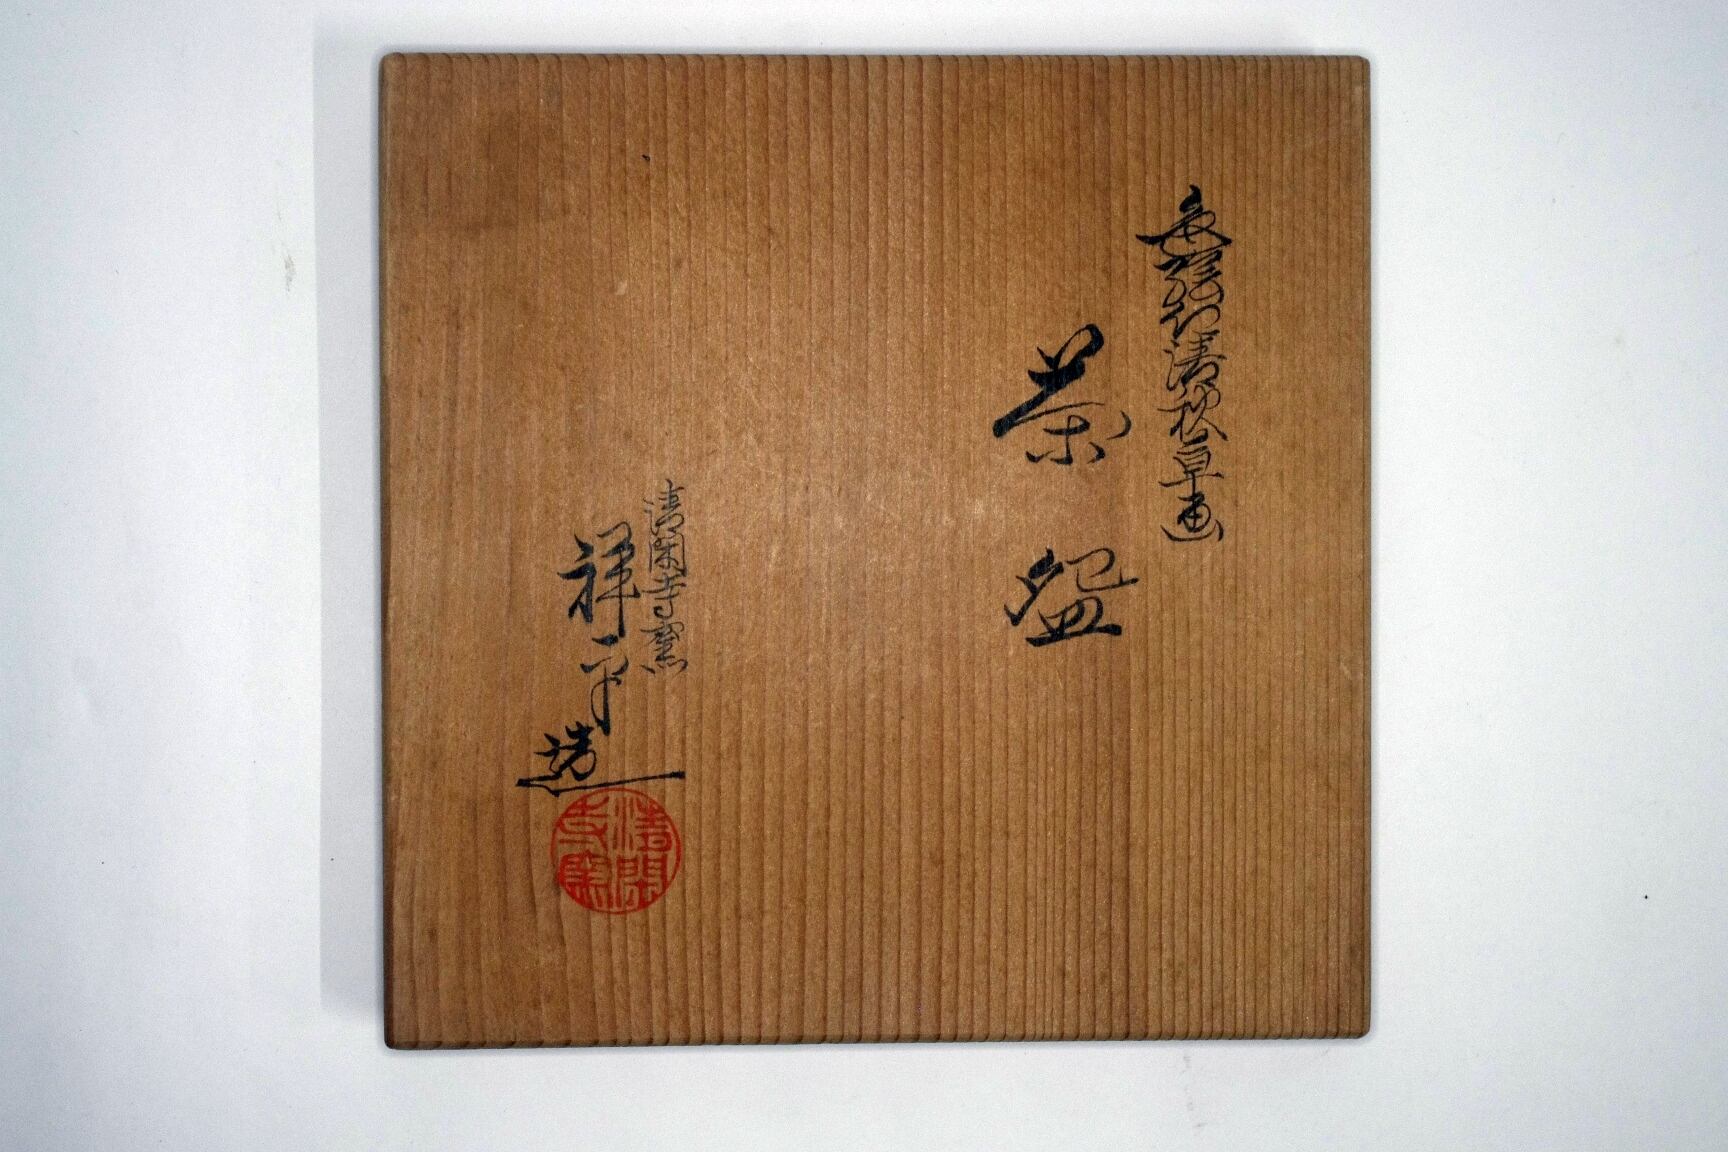 色絵幻清秋草画
茶盌
清閑寺窯
祥平造
清閑
寺窯